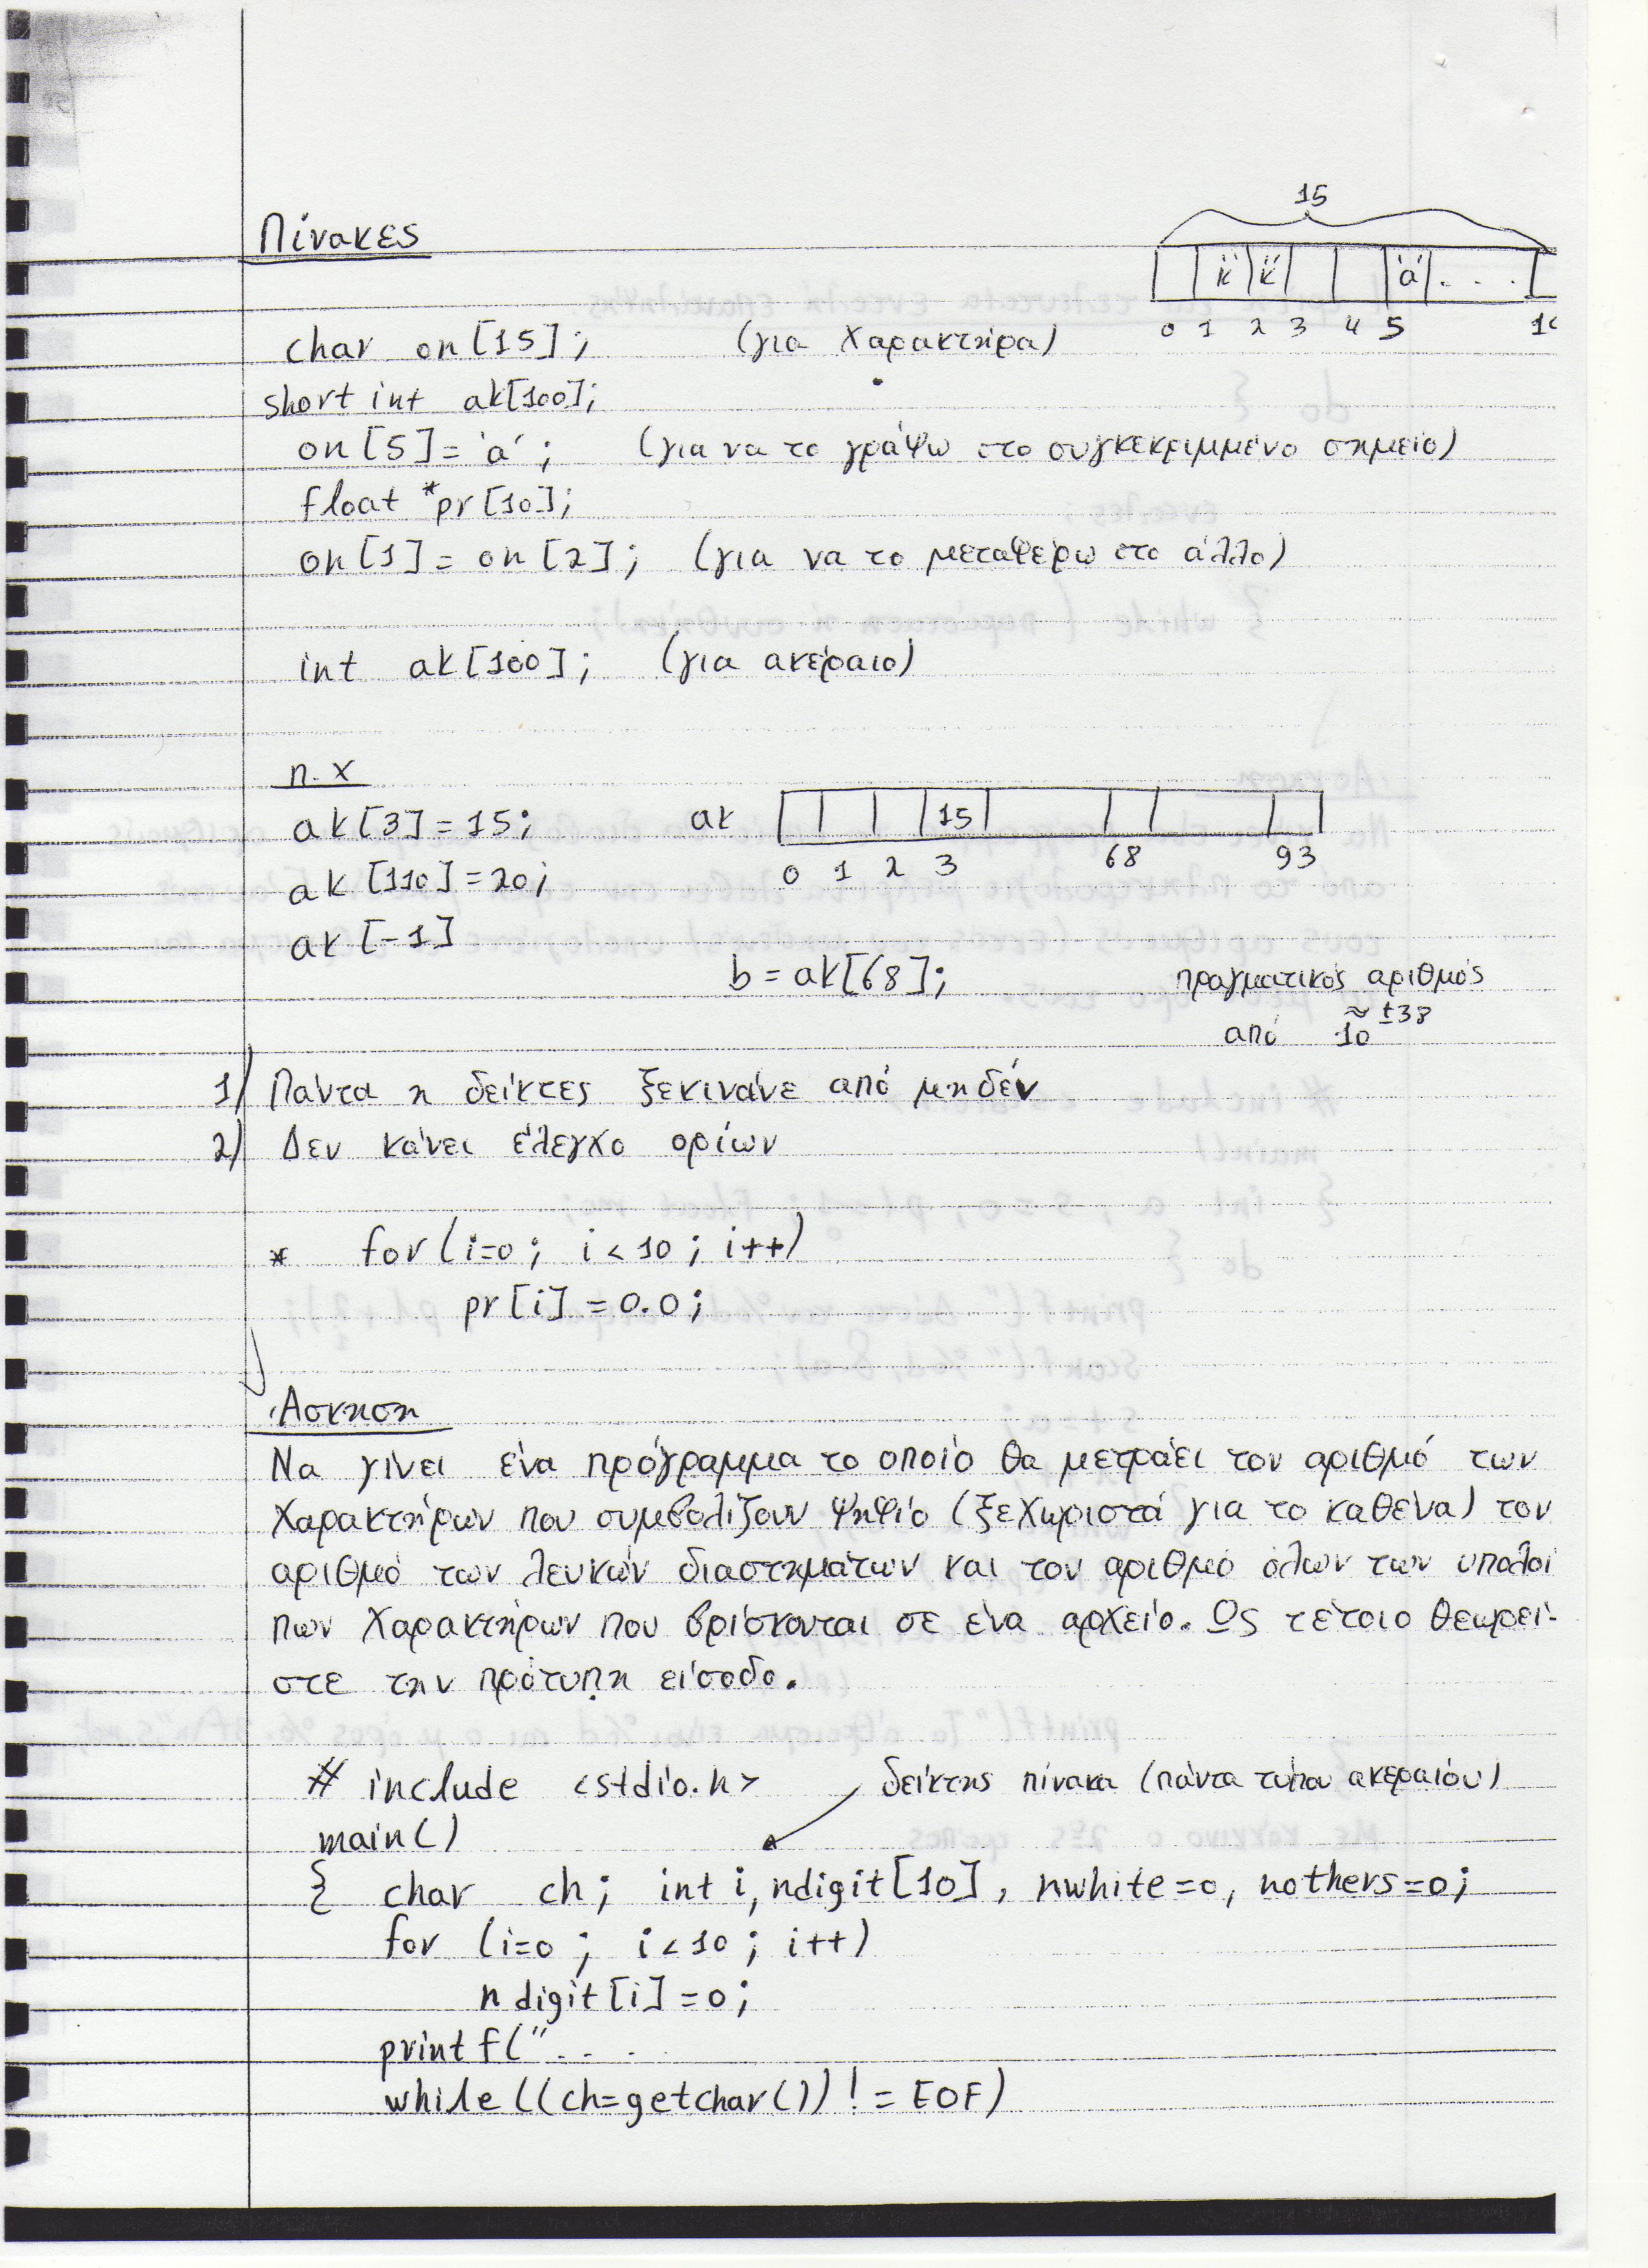 15
Πίνακες
'κ' 'κ' 'α' . . .
0 1 2 3 4 5
char on[15]; (για χαρακτήρα)
short int ak[100];
on[5]='a'; (για να το γράψω στο συγκεκριμμένο σημείο)
float *pr[10];
on[1]=on[2]; (για να το μεταφέρω στο άλλο)
int ak[100]; (για ακέραιο)
π.χ
ak[3]=15; ak 15
0 1 2 3 68 93
ak[110]=20;
ak[-1]
b=ak[68]; πραγματικός αριθμός
από ≈10±38
1) Πάντα η δείκτες ξεκινάνε από μηδέν
2) Δεν κάνει έλεγχο ορίων
* for(i=0; i<10; i++)
pr[i]=0.0;
Άσκηση
Να γίνει ένα πρόγραμμα το οποίο θα μετράει τον αριθμό των
χαρακτήρων που συμβολίζουν ψηφίο (ξεχωριστά για το καθένα) τον
αριθμό των λευκών διαστημάτων και τον αριθμό όλων των υπολοί
πων χαρακτήρων που βρίσκονται σε ένα αρχείο. Ως τέτοιο θεωρεί-
στε την πρότυπη είσοδο.
# include <stdio.h> δείκτης πίνακα (πάντα τύπου ακεραίου)
main()
{ char ch; int i, ndigit[10], nwhite=0, nothers=0;
for (i=0; i<10; i++)
ndigit[i]=0;
printf("....
while((ch=getchar())!=EOF)